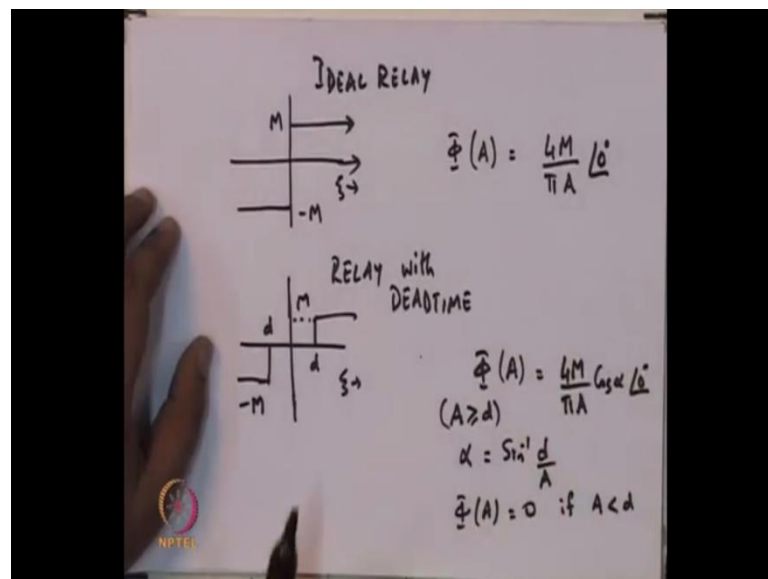 IDEAL RELAY
M
Φ(A) = 4M/πA ∠0°
ξ→
-M
RELAY with
DEADTIME
M
d
d
ξ→
-M
Φ(A) = 4M/πA Cosα ∠0°
(A≥d)
α = Sin⁻¹ d/A
Φ(A) = 0 if A<d
NPTEL